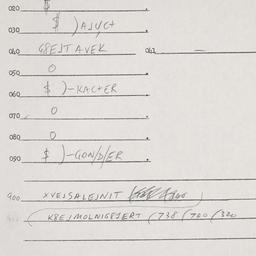 020 $
030 $ ) AJUCT
040 GREJTAVEK 042 —
050 0
060 $ )-KACTER
070 0
080 0
090 $ )-GON/D/ER
900 XVEJSALEJNIT
KBEJMOLNIGBJERT (738 (700 (320